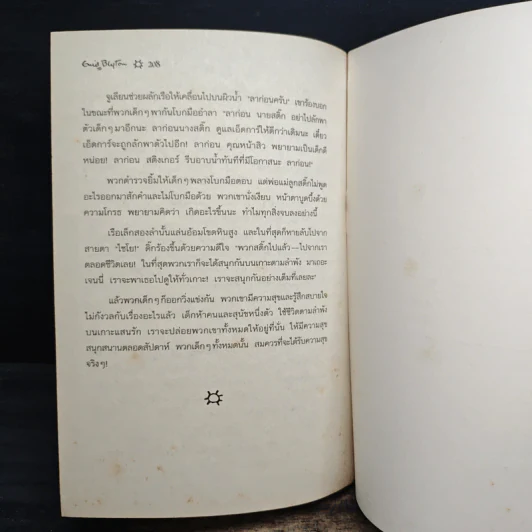 Enid Blyton ☼ 208
จูเลียนช่วยผลักเรือให้เคลื่อนไปบนผิวน้ำ "ลาก่อนครับ" เขาร้องบอก
ในขณะที่พวกเด็กๆ พากันโบกมืออำลา "ลาก่อน นายสติ๊ก อย่าไปลักพา
ตัวเด็กๆ มาอีกนะ ลาก่อนนางสติ๊ก ดูแลเอ็ดการ์ให้ดีกว่าเดิมนะ เดี๋ยว
เอ็ดการ์จะถูกลักพาตัวไปอีก! ลาก่อน คุณหน้าสิว พยายามเป็นเด็กดี
หน่อย! ลาก่อน สติงเกอร์ รีบอาบน้ำทันทีที่มีโอกาสนะ ลาก่อน!"
พวกตำรวจยิ้มให้เด็กๆ พลางโบกมือตอบ แต่พ่อแม่ลูกสติ๊กไม่พูด
อะไรออกมาสักคำและไม่โบกมือด้วย พวกเขานั่งเงียบ หน้าตาบูดบึ้งด้วย
ความโกรธ พยายามคิดว่า เกิดอะไรขึ้นนะ ทำไมทุกสิ่งจบลงอย่างนี้
เรือเล็กสองลำนั้นแล่นอ้อมโขดหินสูง และในที่สุดก็หายลับไปจาก
สายตา "ไชโย!" ดิ๊กร้องขึ้นด้วยความดีใจ "พวกสติ๊กไปแล้ว—ไปจากเรา
ตลอดชีวิตเลย! ในที่สุดพวกเราก็จะได้สนุกกันบนเกาะตามลำพัง มาเถอะ
เจนนี่ เราจะพาเธอไปดูให้ทั่วเกาะ! เราจะสนุกกันอย่างเต็มที่เลยละ"
แล้วพวกเด็กๆ ก็ออกวิ่งแข่งกัน พวกเขามีความสุขและรู้สึกสบายใจ
ไม่กังวลกับเรื่องอะไรแล้ว เด็กห้าคนและสุนัขหนึ่งตัว ใช้ชีวิตตามลำพัง
บนเกาะแสนรัก เราจะปล่อยพวกเขาทั้งหมดให้อยู่ที่นั่น ให้มีความสุข
สนุกสนานตลอดสัปดาห์ พวกเด็กๆ ทั้งหมดนั้น สมควรที่จะได้รับความสุข
จริงๆ!